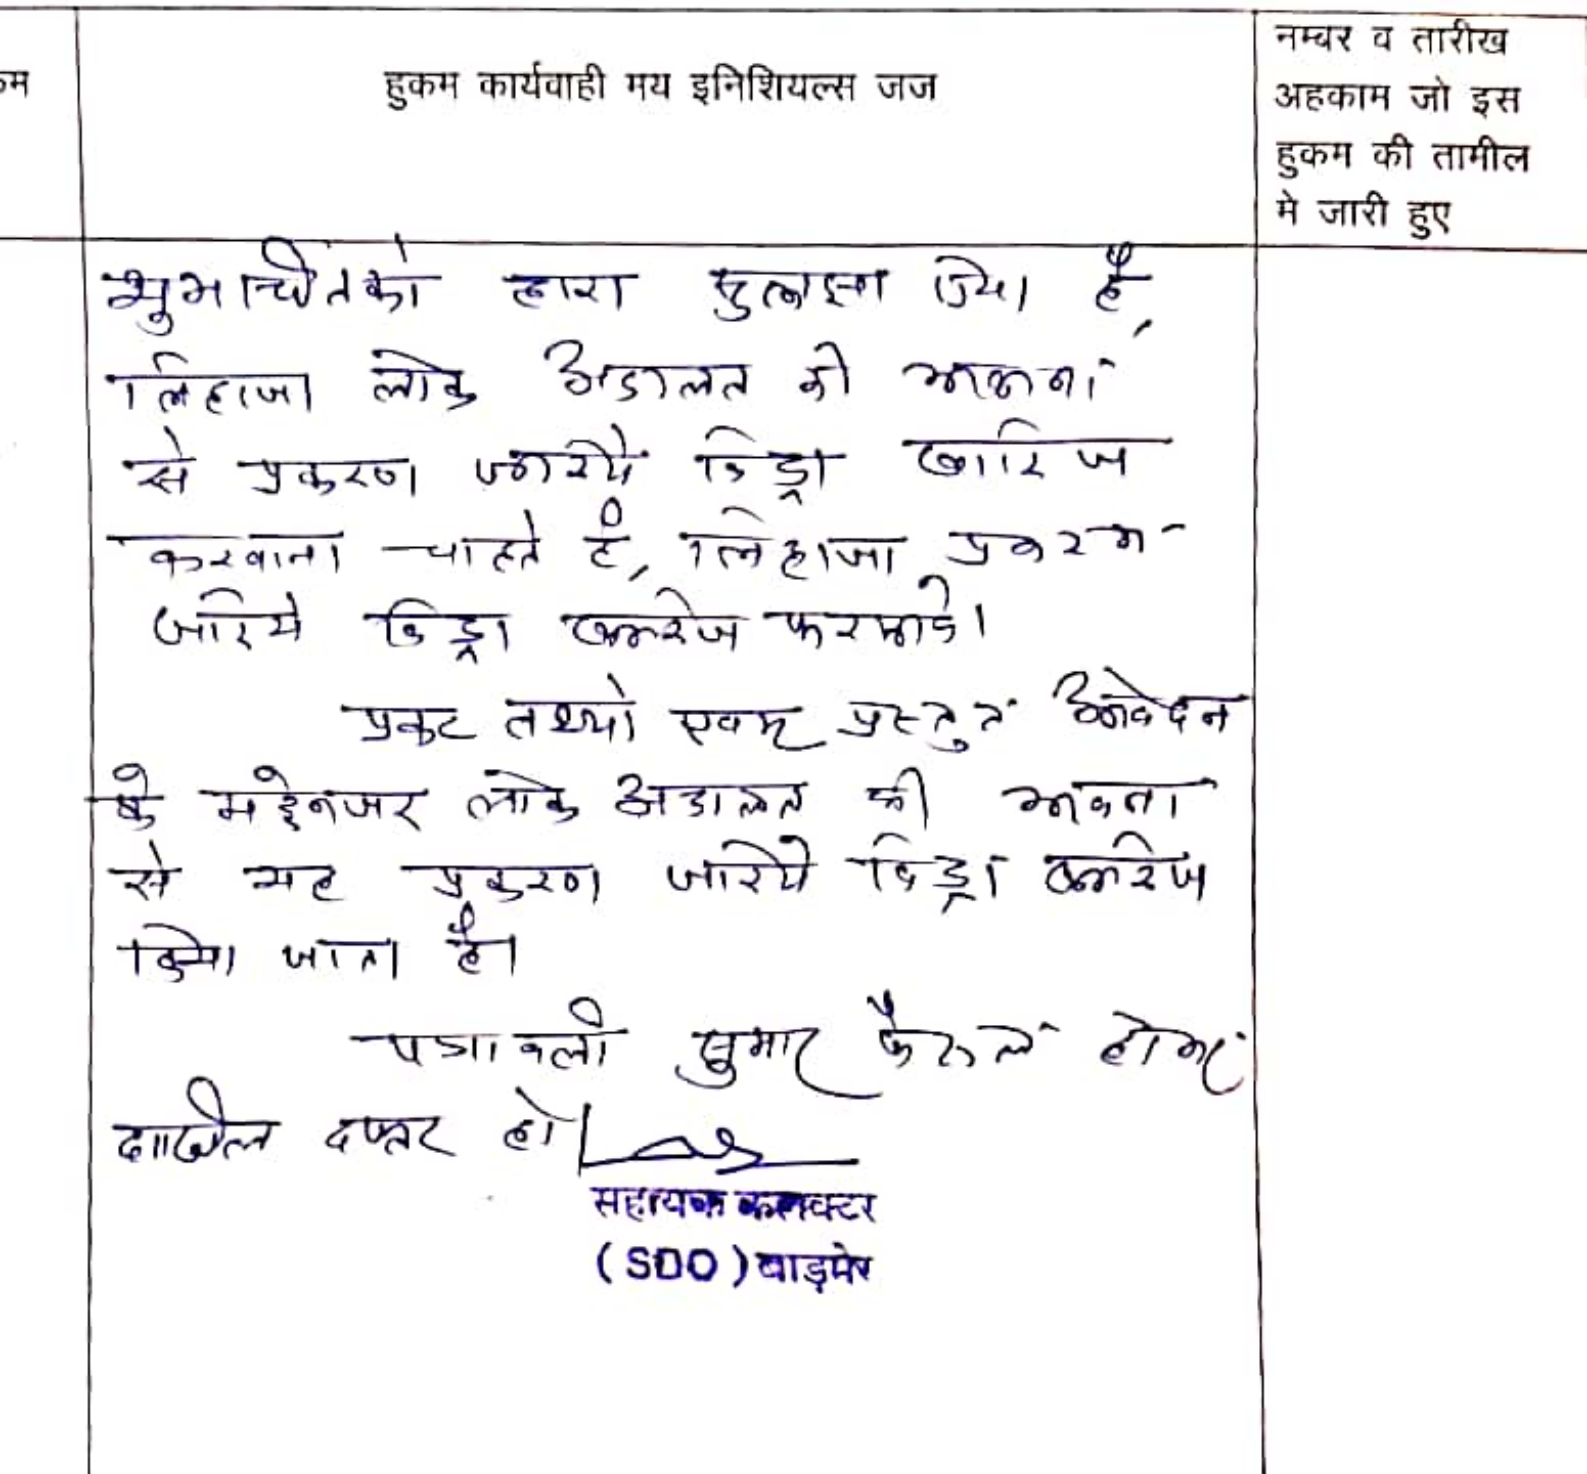 कम
हुकम कार्यवाही मय इनिशियल्स जज
नम्बर व तारीख
अहकाम जो इस
हुकम की तामील
मे जारी हुए
शुभचिंतको द्वारा किया है,
लिहाजा लोक अदालत की भावना
से प्रकरण जरिये विड्रा खारिज
करवाना चाहते है, लिहाजा प्रकरण
जरिये विड्रा खारिज फरमावे।
प्रकट तथ्यो एवम् प्रस्तुत आवेदन
के मद्देनजर लोक अदालत की भावना
से यह प्रकरण जरिये विड्रा खारिज
किया जाता है।
पत्रावली सुमार फैसल होकर
दाखिल दफ्तर हो।
सहायक कलक्टर
(SDO) बाड़मेर